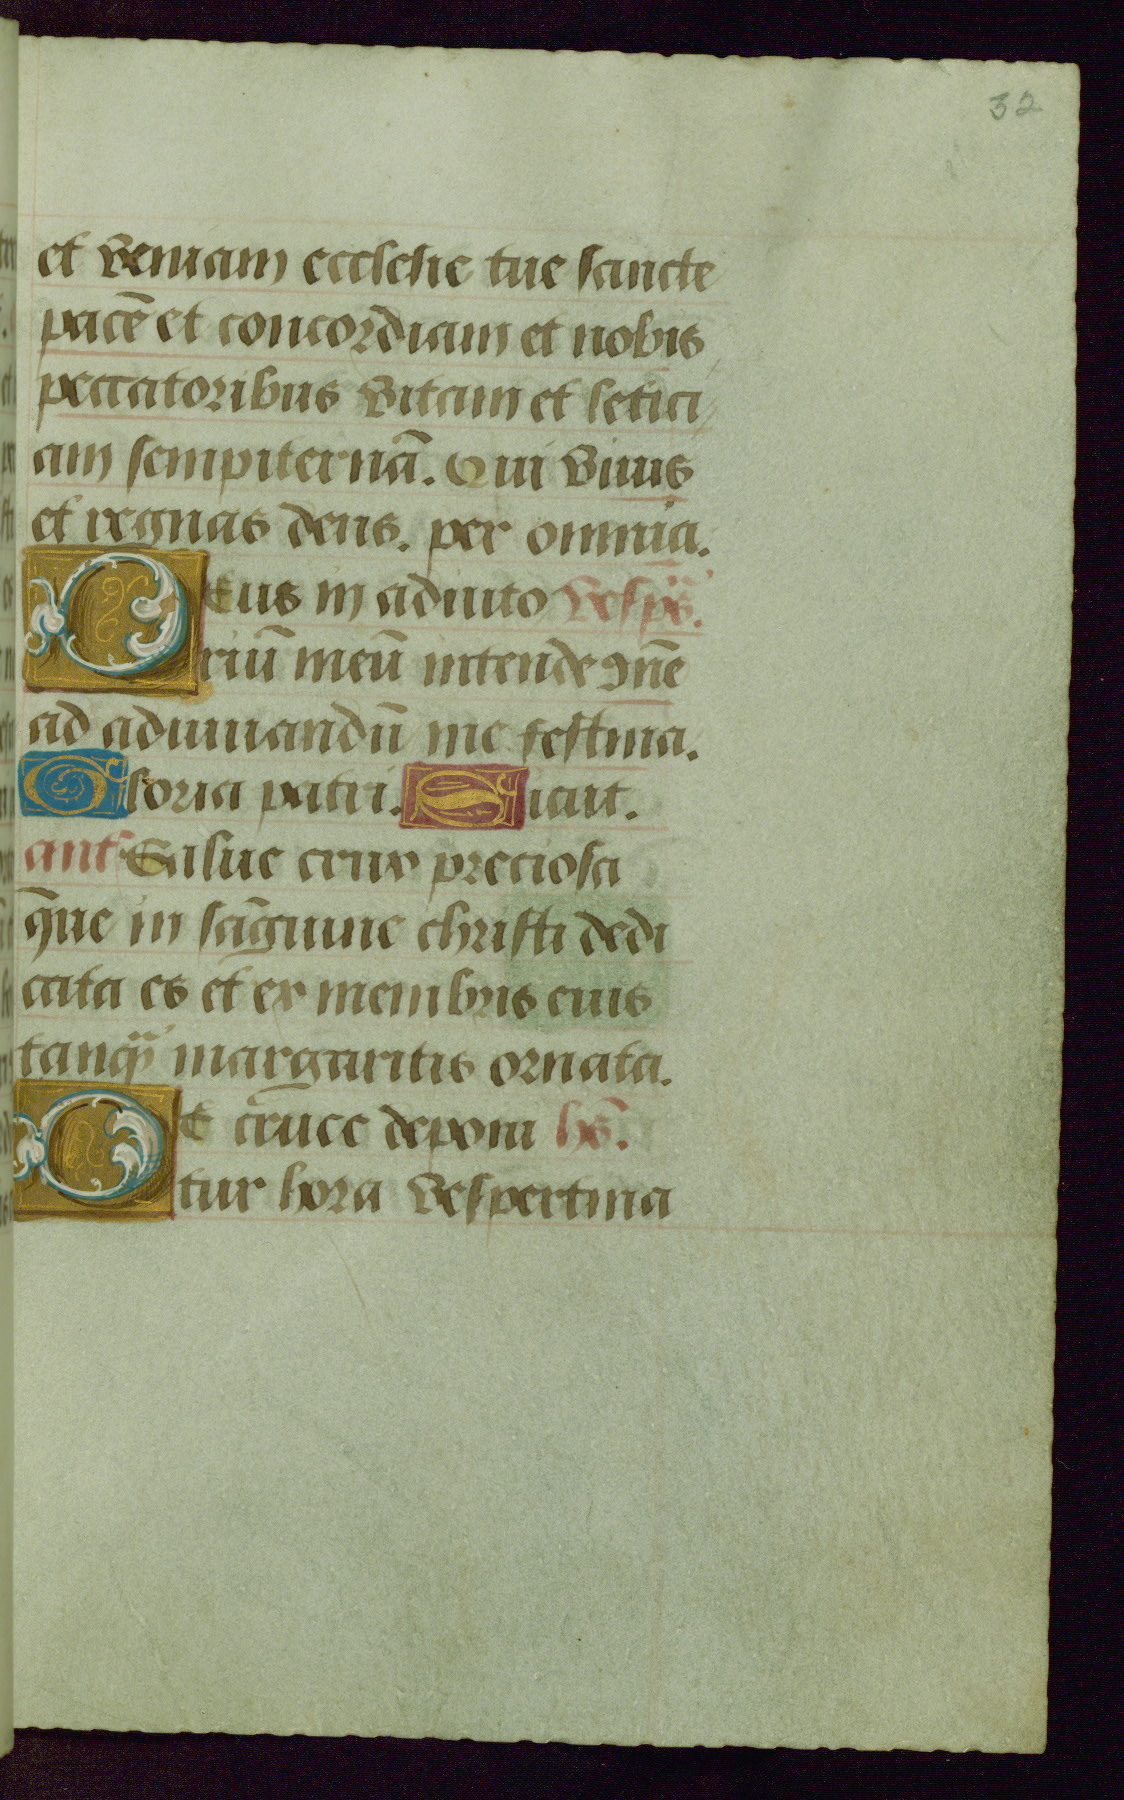 32
et veniam ecclesie tue sancte
pacē et concordiam et nobis
peccatoribus vitam et letici
am sempiternā. Qui vivis
et regnas deus. per omnia.
Deus in adiuto vesp̄s.
riū meū intende Dn̄e
ad adiuuandū me festina.
Gloria patri. Sicut.
ant Salue crux preciosa
que in sāguine christi dedi
cata es et ex membris eius
tanqȝ margaritis ornata.
De cruce deponi hs̄.
tur hora vespertina